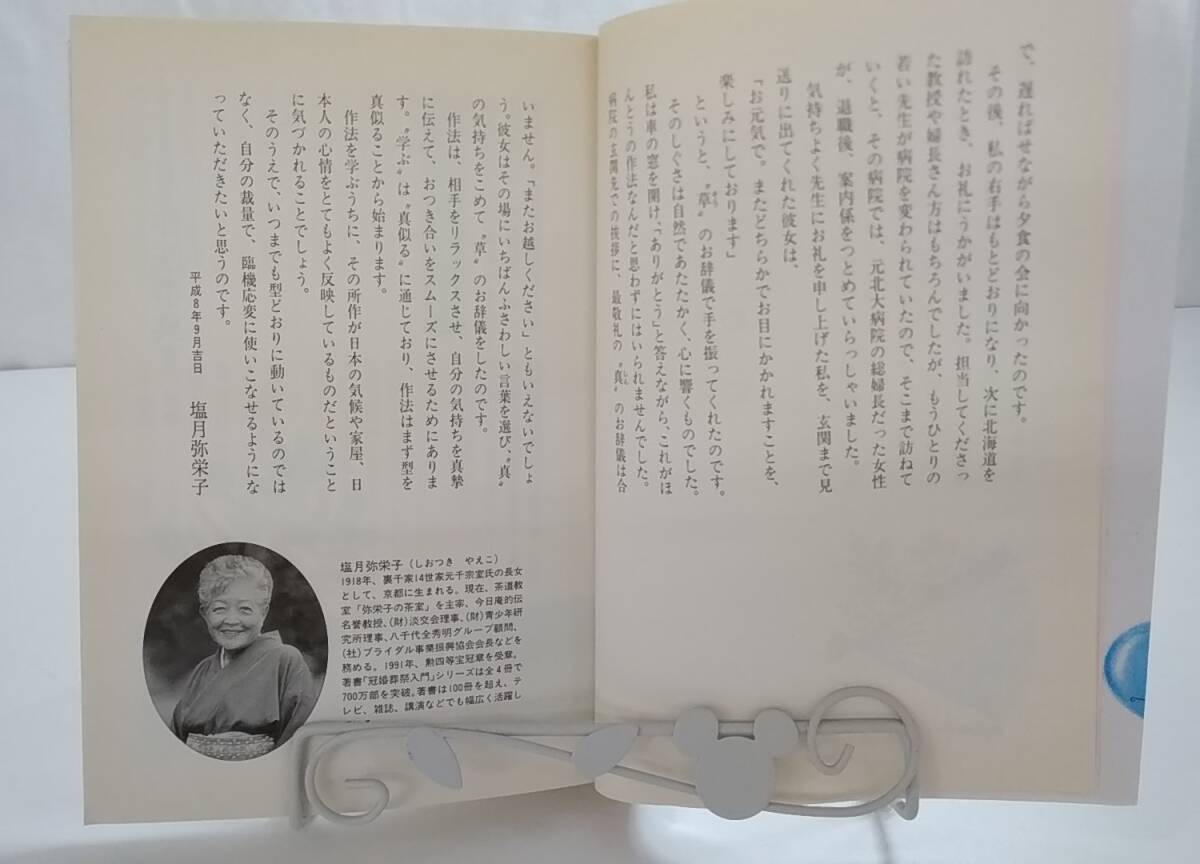 で、遅ればせながら夕食の会に向かったのです。
その後、私の右手はもとどおりになり、次に北海道を
訪れたとき、お礼にうかがいました。担当してくださっ
た教授や婦長さん方はもちろんでしたが、もうひとりの
若い先生が病院を変わられていたので、そこまで訪ねて
いくと、その病院では、元北大病院の総婦長だった女性
が、退職後、案内係をつとめていらっしゃいました。
気持ちよく先生にお礼を申し上げた私を、玄関まで見
送りに出てくれた彼女は、
「お元気で。またどちらかでお目にかかれますことを、
楽しみにしております」
というと、〝草〟のお辞儀で手を振ってくれたのです。
そのしぐさは自然であたたかく、心に響くものでした。
私は車の窓を開け、「ありがとう」と答えながら、これがほ
んとうの作法なんだと思わずにはいられませんでした。
病院の玄関先での挨拶に、最敬礼の〝真〟のお辞儀は合
いません。「またお越しください」ともいえないでしょ
う。彼女はその場にいちばんふさわしい言葉を選び、〝真〟
の気持ちをこめて〝草〟のお辞儀をしたのです。
作法は、相手をリラックスさせ、自分の気持ちを真摯
に伝えて、おつき合いをスムーズにさせるためにありま
す。〝学ぶ〟は〝真似る〟に通じており、作法はまず型を
真似ることから始まります。
作法を学ぶうちに、その所作が日本の気候や家屋、日
本人の心情をとてもよく反映しているものだということ
に気づかれることでしょう。
そのうえで、いつまでも型どおりに動いているのでは
なく、自分の裁量で、臨機応変に使いこなせるようにな
っていただきたいと思うのです。
平成8年9月吉日
塩月弥栄子
塩月弥栄子(しおつき やえこ)
1918年、裏千家14世家元千宗室氏の長女
として、京都に生まれる。現在、茶道教
室「弥栄子の茶室」を主宰、今日庵的伝
名誉教授、(財)淡交会理事、(財)青少年研
究所理事、八千代全秀明グループ顧問、
(社)ブライダル事業振興協会会長などを
務める。1991年、勲四等宝冠章を受章。
著書「冠婚葬祭入門」シリーズは全4冊で
700万部を突破。著書は100冊を超え、テ
レビ、雑誌、講演などでも幅広く活躍し